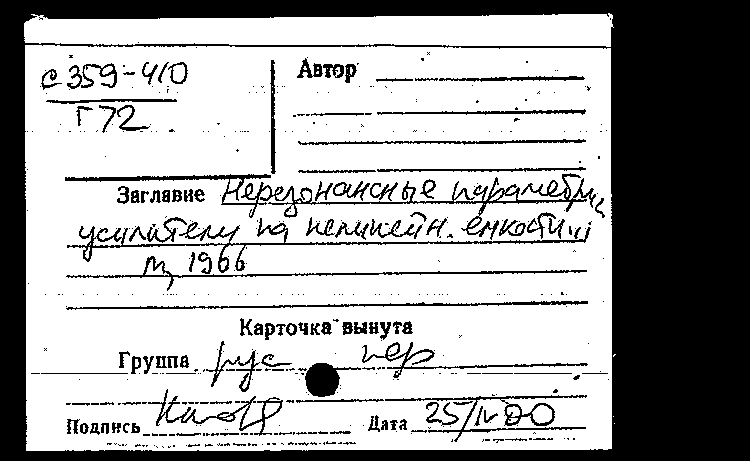 с 359-410
Автор
Г 72
Заглавие Нерезонансные параметрич
усилители на нелинейн. емкости
М, 1966
Карточка вынута
Группа рус пер
Подпись
Дата 25/IV 00